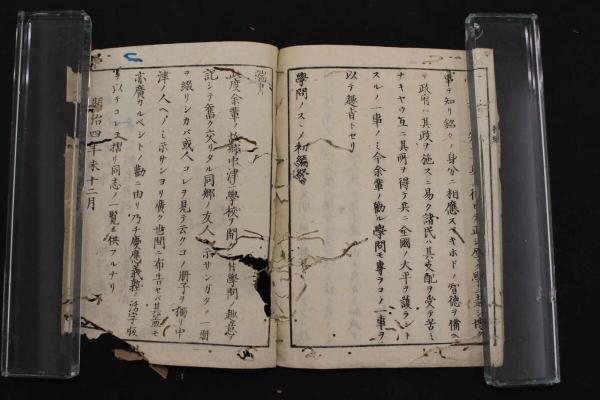 事ヲ知リ銘々ノ身分ニ相應スベキホドノ智德ヲ備ヘ
政府ハ其政ヲ施スニ易ク諸民ハ其支配ヲ受テ苦ミ
ナキヤウ互ニ其所ヲ得テ共ニ全國ノ太平ヲ護ラント
スルノ一事ノミ今余輩ノ勸ル學問モ專ラコノ一事ヲ
以テ趣旨トセリ
學問ノスヽメ初編終
端書
此度余輩ノ故鄉中津ニ學校ヲ開クニ付學問ノ趣意ヲ
記シテ舊ク交リタル同鄉ノ友人ヘ示サンガタメ一册
ヲ綴リシカバ或人コレヲ見テ云クコノ册子ヲ獨リ中
津ノ人ヘノミ示サンヨリ廣ク世間ニ布吿セバ其益モ
亦廣カルベシトノ勸ニ由リ乃チ慶應義塾ノ活字版
ヲ以テコレヲ摺リ同志ノ一覽ニ供フルナリ
明治四年未十二月